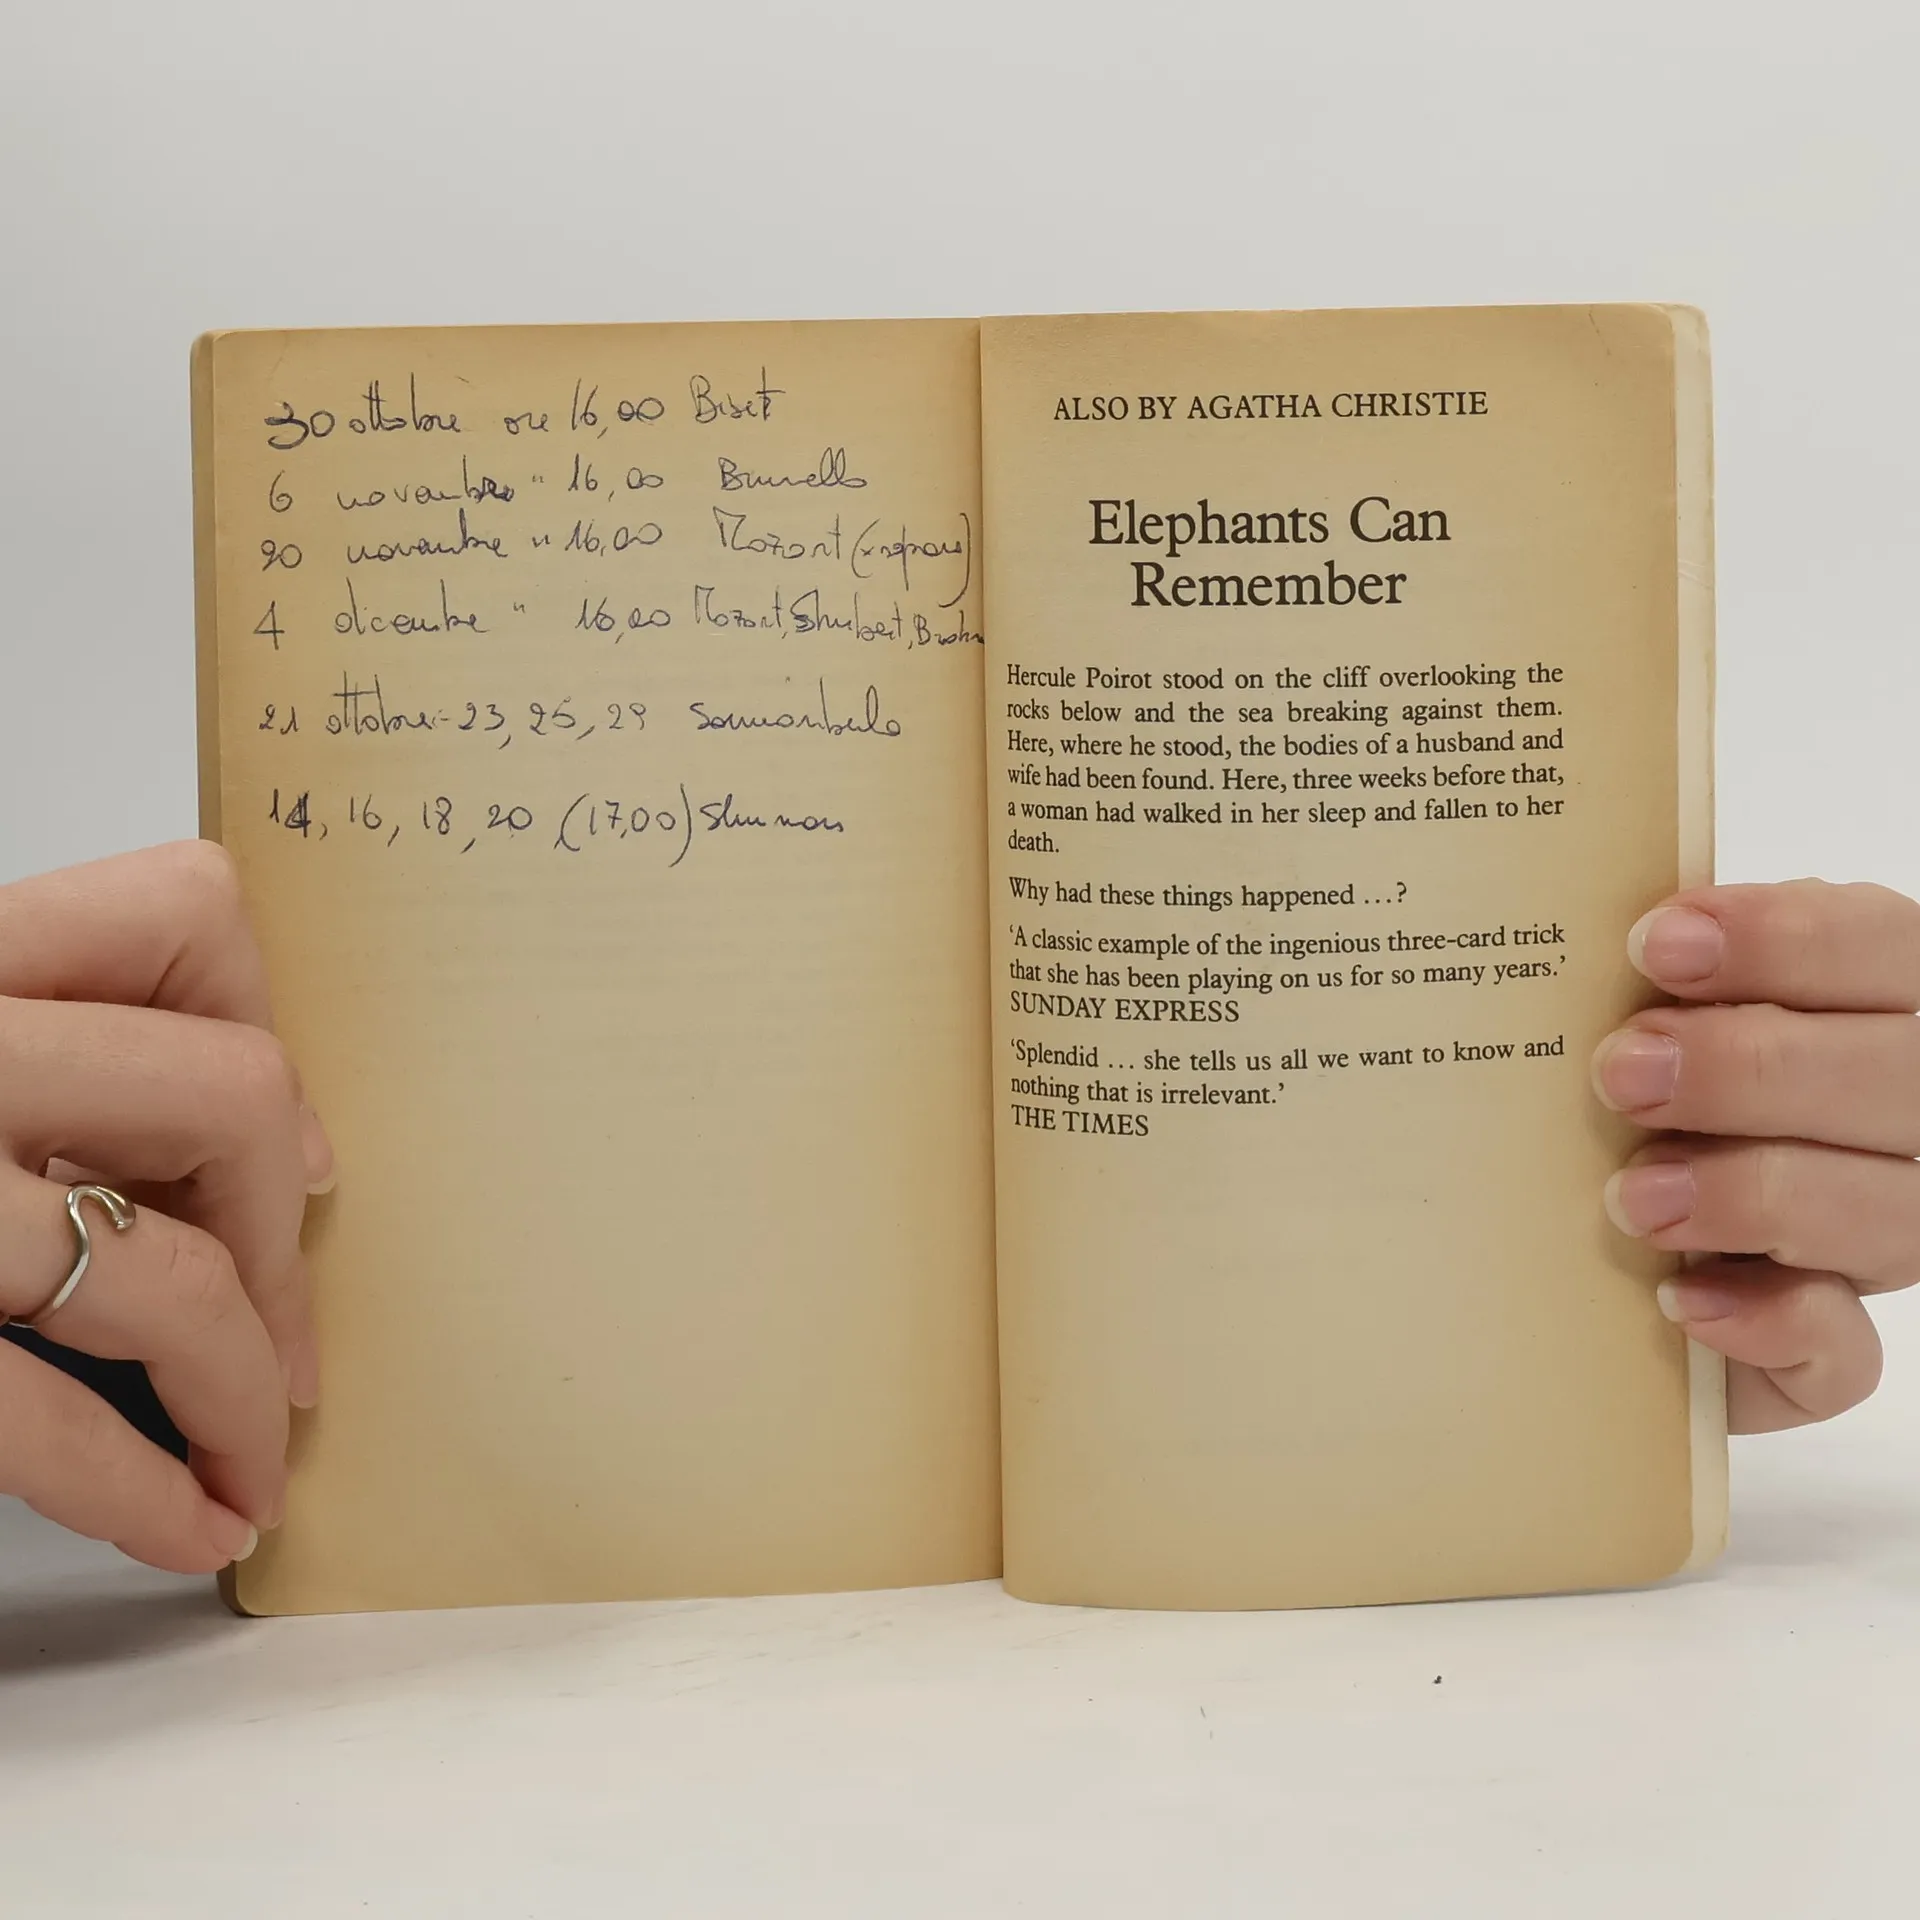 30 ottobre ore 16,00 Biset
6 novembre " 16,00 Brunello
20 novembre " 16,00 Mozart
4 dicembre " 16,00 Mozart, Shubert, Brahm
21 ottobre - 23, 25, 29 Sonnambula
14, 16, 18, 20 (17,00)
ALSO BY AGATHA CHRISTIE
Elephants Can
Remember
Hercule Poirot stood on the cliff overlooking the
rocks below and the sea breaking against them.
Here, where he stood, the bodies of a husband and
wife had been found. Here, three weeks before that,
a woman had walked in her sleep and fallen to her
death.
Why had these things happened …?
‘A classic example of the ingenious three-card trick
that she has been playing on us for so many years.’
SUNDAY EXPRESS
‘Splendid … she tells us all we want to know and
nothing that is irrelevant.’
THE TIMES